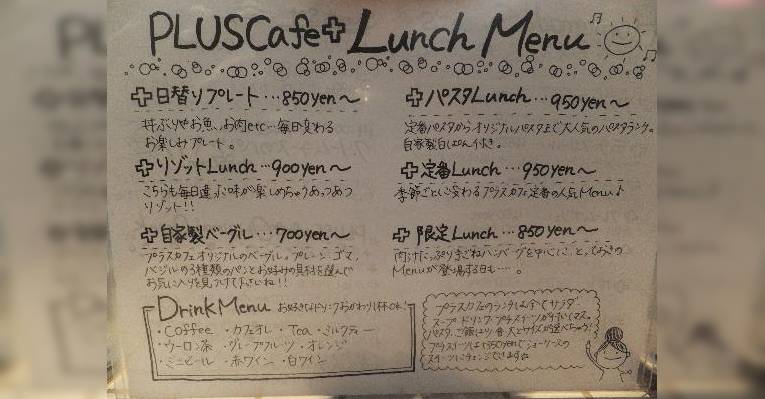 PLUSCafe+ Lunch Menu
日替りプレート…850yen~
丼ぶりやお魚、お肉etc…毎日変わる
お楽しみプレート。
リゾットLunch…900yen~
こちらも毎日違った味が楽しめちゃうあつあつ
リゾット!!
自家製ベーグル…700yen~
プラスカフェオリジナルのベーグル。プレーン、ゴマ、
バジルの3種類のパンとお好みの具材を選んで
お気に入りを見つけて下さいね!!
パスタLunch…950yen~
定番パスタからオリジナルパスタまで大人気のパスタランチ。
自家製白ぱん付き。
定番Lunch…950yen~
季節ごとに変わるプラスカフェ定番の人気Menu♪
限定Lunch…850yen~
肉汁たっぷり手ごねハンバーグを中心に、とっておきの
Menuが登場する日も…。
Drink Menu お好きなドリンクおかわり1杯OK!
・Coffee ・カフェオレ ・Tea ・ミルクティー
・ウーロン茶 ・グレープフルーツ ・オレンジ
・ミニビール ・赤ワイン ・白ワイン
プラスカフェのランチは全てサラダ
スープ、ドリンク、プラスイーツが付いてます。
パスタ、ご飯は小・普・大とサイズが選べちゃう!
プラスイーツは+350yenでショーケースの
スイーツにチェンジできます☆